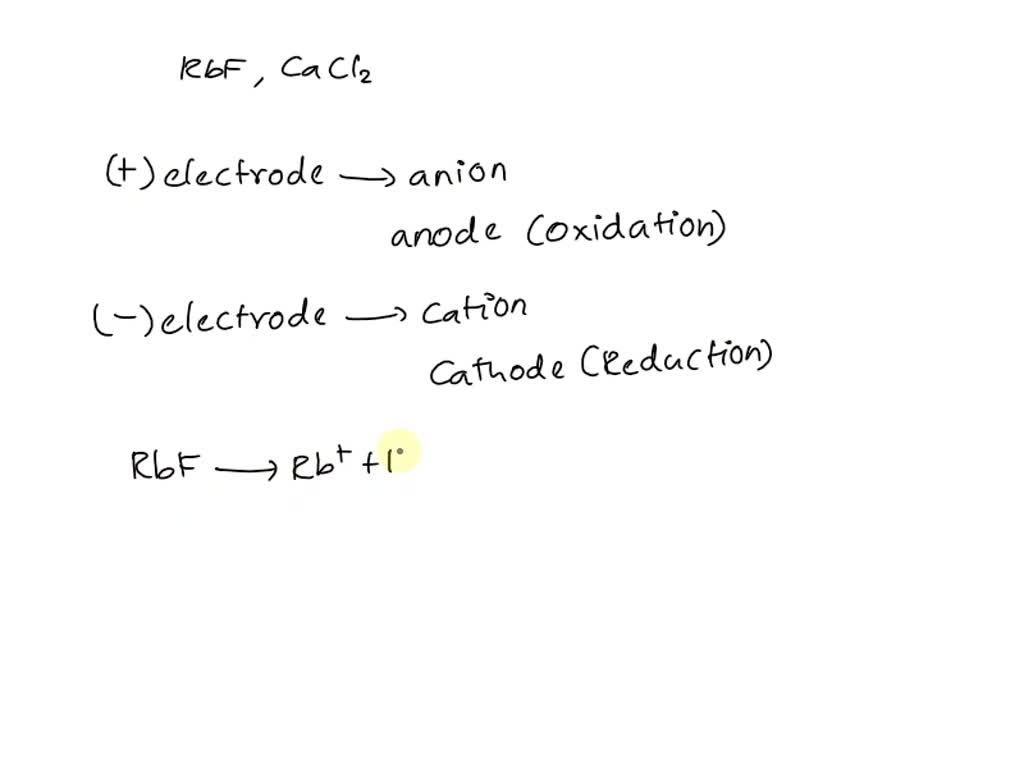 RbF, CaCl₂
(+) electrode → anion
anode (oxidation)
(-) electrode → cation
Cathode (Reduction)
RbF → Rb⁺ +